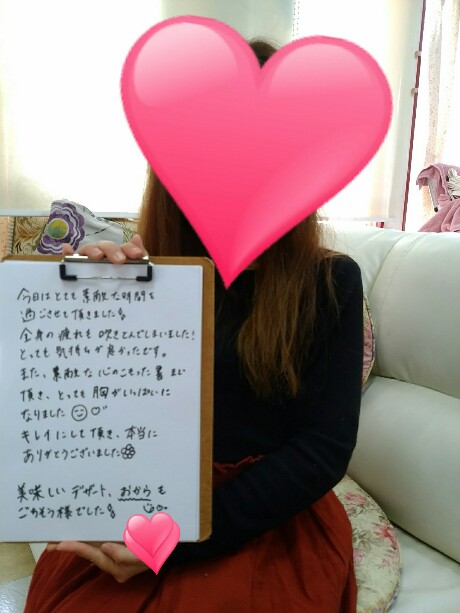 今日はとても素敵な時間を
過ごさせて頂きました
全身の疲れも吹きとんでしまいました!
とっても気持ちが良かったです。
また、素敵な心のこもった書まで
頂き、とっても胸がいっぱいに
なりました
キレイにして頂き、本当に
ありがとうございました
美味しいデザート、おからも
ごちそう様でした